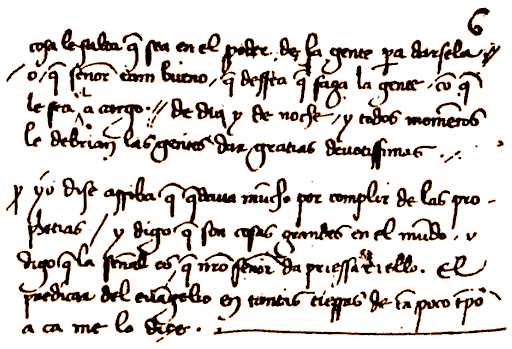 6
cosa le falta q̄ sea en el poder de la gente pa darsela //
/ o q̄ señor tam bueno q̄ dessea q̄ faga la gente cō q̄
le sea a cargo // de dia y de noche y todos momentos
le debrian las gentes dar gratias devotissimas
yo dise arriba q̄ q̄dava mucho por complir de las pro-
phetias / y digo q̄ son cosas grandes en el mūdo y
digo q̄ la señal es q̄ nrō señor da priessa a ello . El
predicar del evangelio en tantas tierras de tā poco tpō
a ca me lo dize .